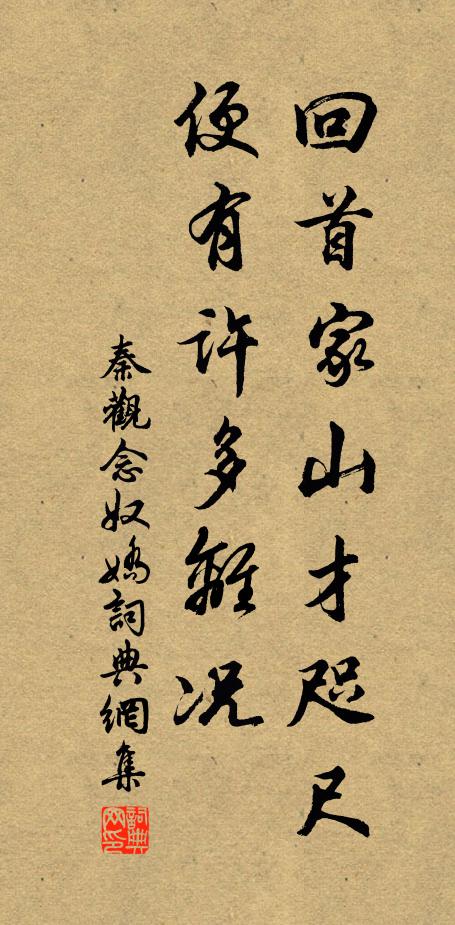 回首家山才咫尺
便有許多離况
秦觀念奴嬌詞典網集
詞典网印